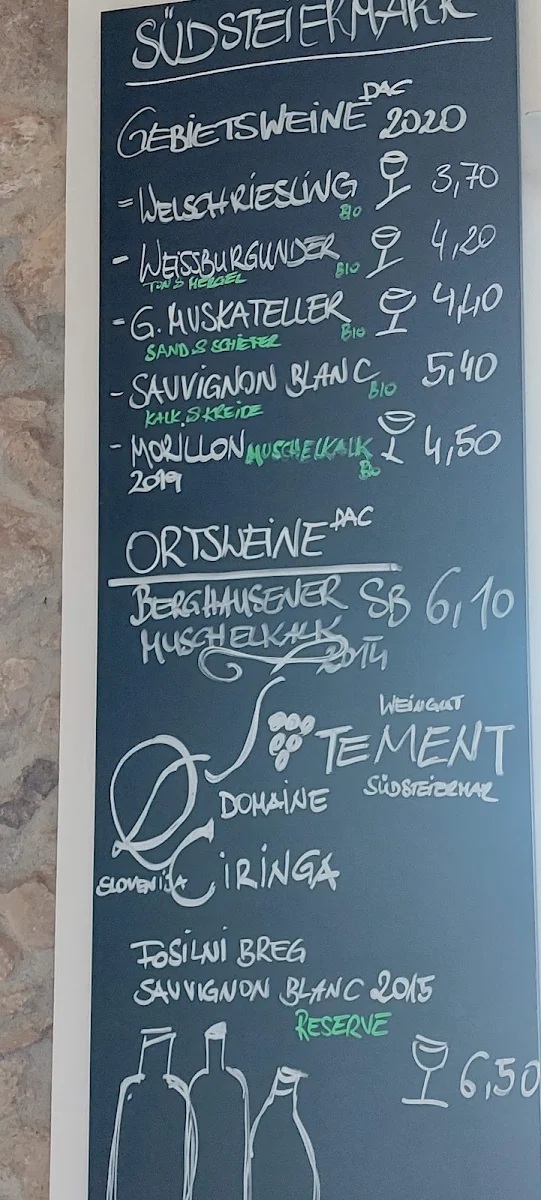 SÜDSTEIERMARK
GEBIETSWEINE DAC 2020
= WELSCHRIESLING 3,70
BIO
- WEISSBURGUNDER 4,20
TON & MERGEL BIO
- G. MUSKATELLER 4,40
SAND & SCHIEFER BIO
- SAUVIGNON BLANC 5,40
KALK & KREIDE BIO
- MORILLON MUSCHELKALK 4,50
2019 Bio
ORTSWEINE DAC
BERGHAUSENER SB 6,10
MUSCHELKALK
2014
WEINGUT
TEMENT
SÜDSTEIERMAR
DOMAINE
CIRINGA
SLOVENIJA
FOSILNI BREG
SAUVIGNON BLANC 2015
RESERVE
6,50